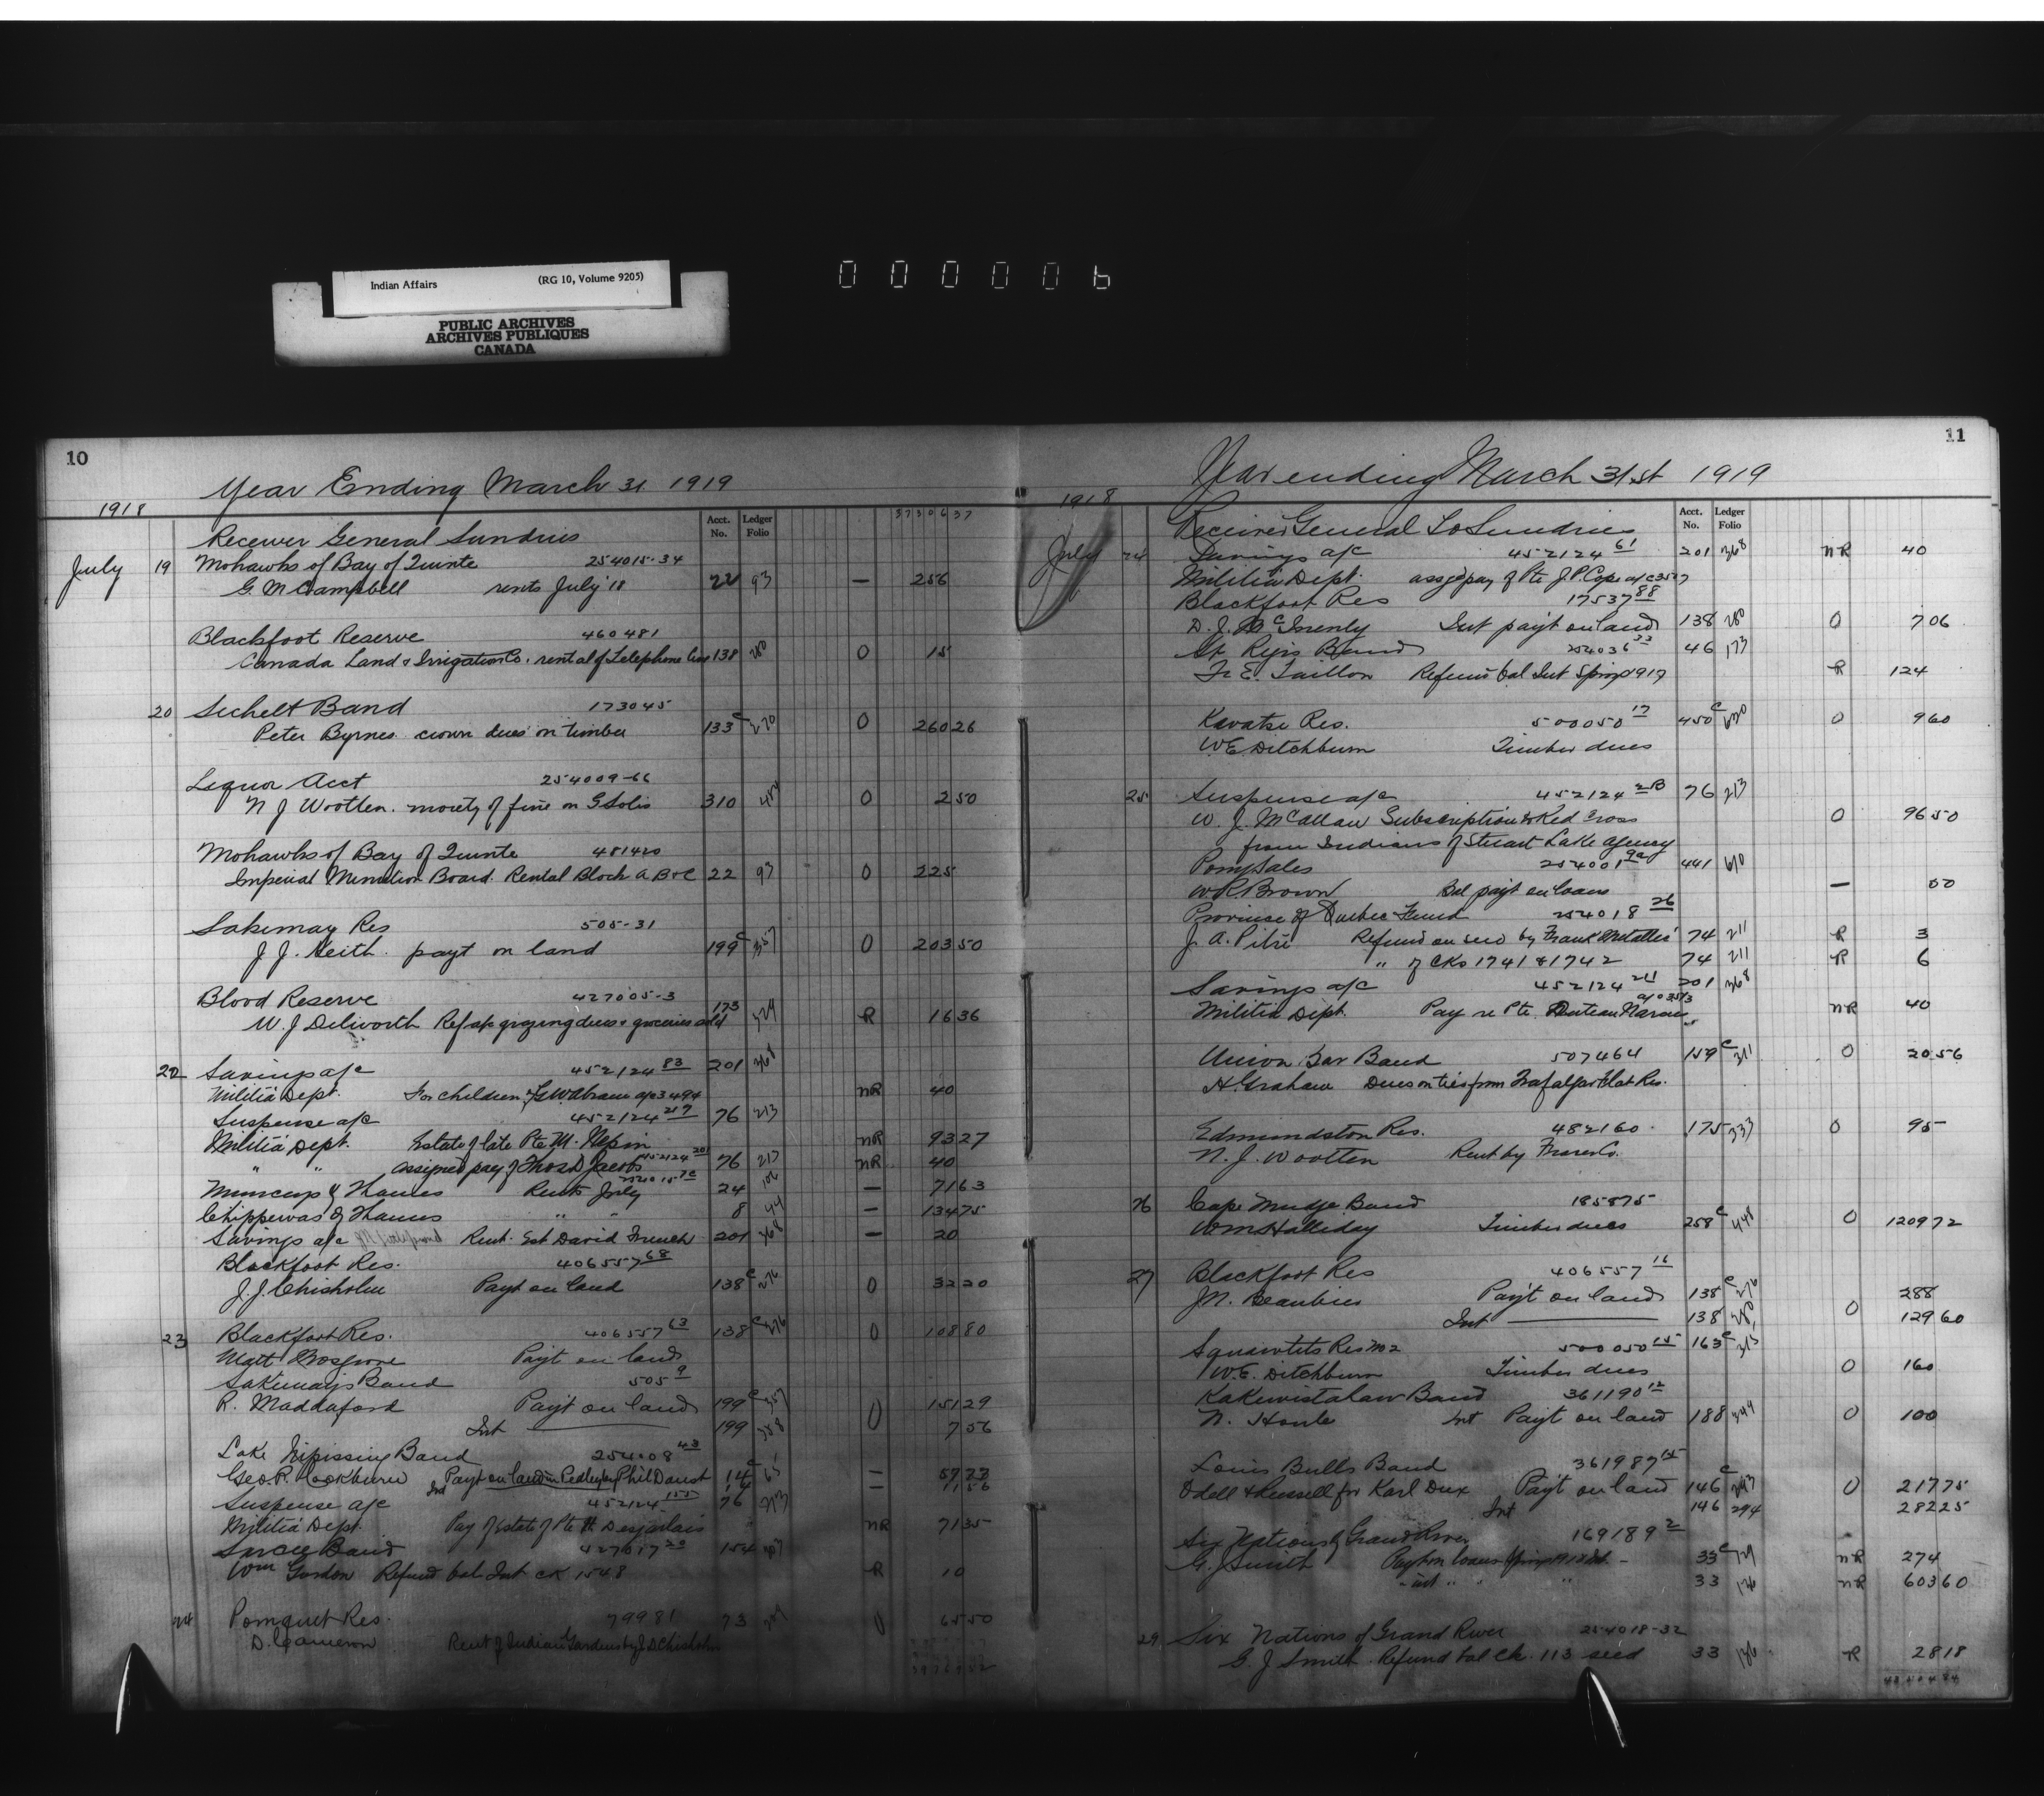 Indian Affairs (RG 10, Volume 9205)
PUBLIC ARCHIVES
ARCHIVES PUBLIQUES
CANADA
000006
10
Year Ending March 31 1919
1918
Acct. No. Ledger Folio 37306 37
Receiver General Sundries
July 19 Mohawks of Bay of Quinte 254015-34
G. M Campbell rents July '18 22 93 — 256
Blackfoot Reserve 460481
Canada Land & Irrigation Co. rental of Telephone line 138 280 0 15
20 Sechelt Band 173045
Peter Byrnes crown dues on timber 133 c 270 0 260 26
Liquor Acct 254009-66
N J Wootten. moiety of fine on G Solis 310 0 2 50
Mohawks of Bay of Quinte 481420
Imperial Munition Board. Rental Block A B & C 22 93 0 225
Sakimay Res 505-31
J. J. Keith. payt on land 199 c 357 0 203 50
Blood Reserve 427005-3
W. J Dilworth Ref a/c grazing dues & groceries sold 173 329 R 16 36
22 Savings a/c 452124 83 201 368
Militia Dept. For children, G.W. Abram a/c 3494 NR 40
Suspense a/c 452124 217 76 213
Militia Dept. Estate of late Pte M. NR 93 27
" " assigned pay of Thos D Jacobs 452124 201 76 213 NR 40
Munceys of Thames Rents July 24 106 — 71 63
Chippewas of Thames " " 8 44 — 134 75
Savings a/c Rent. Est David French 201 368 — 20
Blackfoot Res. 406557 68
J. J. Chisholm Payt on land 138 c 276 0 32 20
23 Blackfoot Res. 406557 63 138 c 276 0 108 80
Matt Payt on land
Sakimays Band 505 9
R. Maddaford Payt on land 199 c 357 0 151 29
Int 199 358 7 56
Lake Nipissing Band 254008 43
Geo. P. Cockburn Payt on land in Pedley by Phil Daoust 14 c 65 — 57 77
Int 14 —
Suspense a/c 452124 155 76 213
Militia Dept. Pay of Estate of Pte H. Desjarlais " NR 71 35
Sarcee Band 427017 20 154 307
Wm Gordon Refund bal Int ck 1548 R 10
24 Pomquet Res. 79981 73 209 0 65 50
D. Cameron Rent of Indian Gardens by J D Chisholm
11
Year ending March 31st 1919
1918
Acct. No. Ledger Folio
Receiver General To Sundries
July 24 Savings a/c 452124 61 201 368 NR 40
Militia Dept. assgd pay of Pte J. P. Cope a/c 3527
Blackfoot Res 17537 88
D. J. McInenly Int payt on land 138 280 0 7 06
St. Regis Band 254036 33 46 173
Fr E. Taillon Refund bal Int Spring 1917 R 1 24
Kavatse Res. 500050 17 450 c 620 0 9 60
W. E. Ditchburn Timber dues
25 Suspense a/c 452124 2B 76 213
W. J. McAllan Subscription to Red Cross 0 96 50
from Indians of Stewart Lake agency
Pony Sales 254001 92 441 610
W. R. Brown Bal payt on loans — 50
Province of Quebec Fund 254018 26
J. A. Pitre Refund on seed by Frank Metallic 74 211 R 3
" of cks 1741 & 1742 74 211 R 6
Savings a/c 452124 24 201 368
Militia Dept. Pay re Pte a/c 3513 NR 40
Union Bar Band 507464 159 c 311 0 20 56
H. Graham Dues on ties from Trafalgar Flat Res.
Edmundston Res. 482160. 175 333 0 95
N. J. Wootten Rent by Fraser Co.
26 Cape Mudge Band 185875
W M Halliday Timber dues 258 c 448 0 1209 72
27 Blackfoot Res 406557 16
J. N. Beaubien Payt on land 138 c 276 288
Int 138 280 0 129 60
Squawtits Res No 2 500050 15 163 c 315
W. E. Ditchburn Timber dues 0 160
Kakewistahaw Band 361190 12
N. Houle Int Payt on land 188 344 0 100
Louis Bulls Band 361987 15
Odell & Russell for Karl Dux Payt on land 146 c 293 0 217 75
Int 146 294 282 25
Six Nations of Grand River 169189 2
G. J. Smith Payt on loans Spring 1918 33 c 129 NR 274
" int " " 33 136 NR 603 60
29 Six Nations of Grand River 254018-32
G. J Smith Refund bal ck. 113 seed 33 136 R 28 18